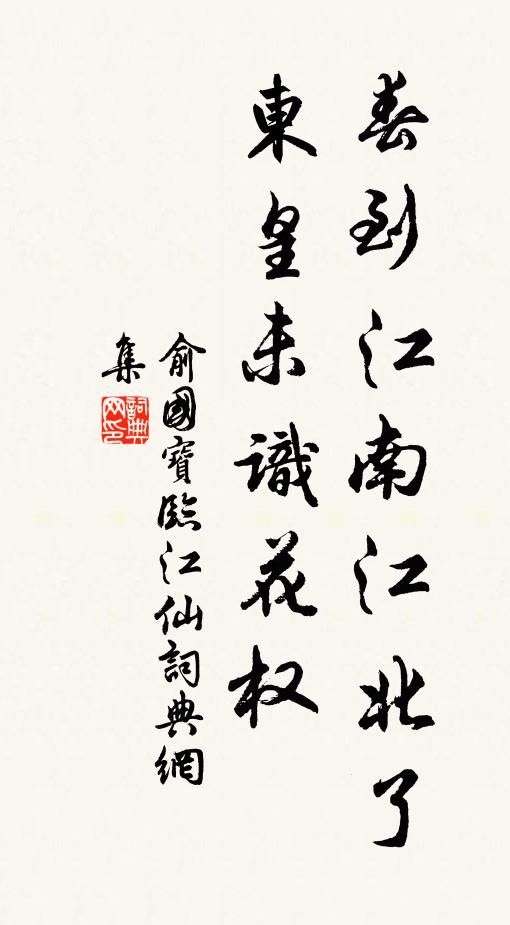 春到江南江北了
東皇未識花权
俞國寶臨江仙詞典網
集
詞典
网印